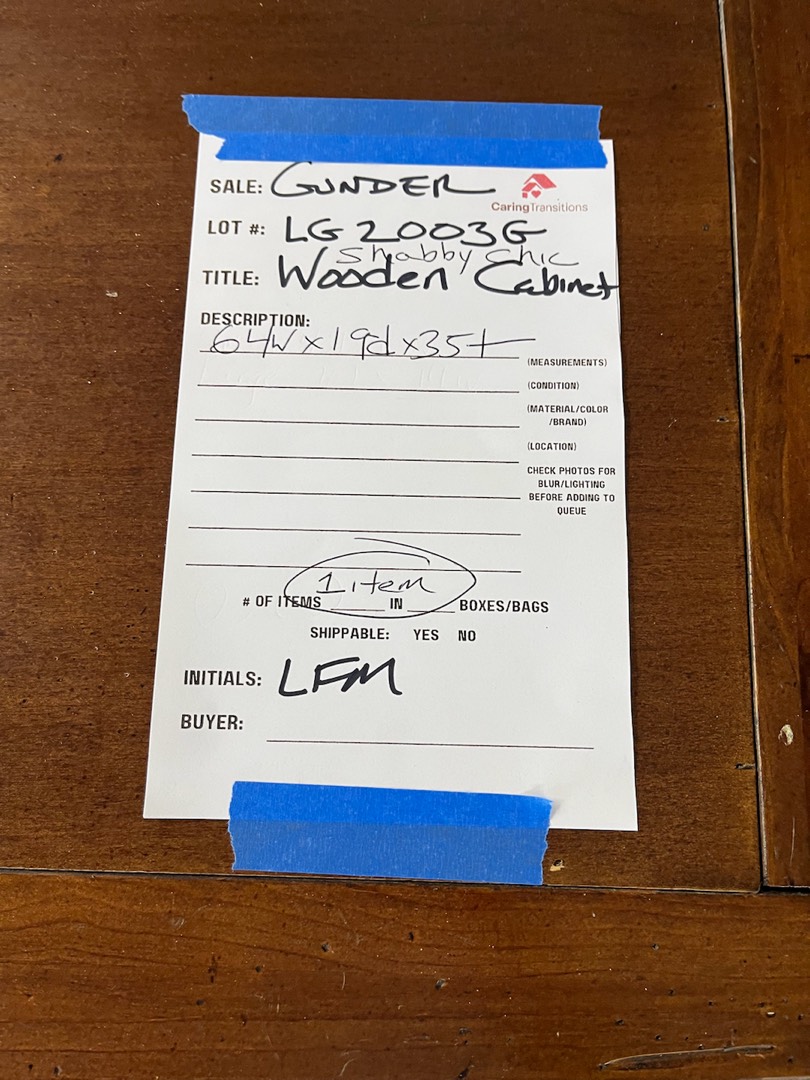 SALE: GUNDER
CaringTransitions
LOT #: LG2003G
Shabby Chic
TITLE: Wooden Cabinet
DESCRIPTION:
64w x 19d x 35t
(MEASUREMENTS)
(CONDITION)
(MATERIAL/COLOR
/BRAND)
(LOCATION)
CHECK PHOTOS FOR
BLUR/LIGHTING
BEFORE ADDING TO
QUEUE
1 item
# OF ITEMS ____ IN ____ BOXES/BAGS
SHIPPABLE: YES NO
INITIALS: LFM
BUYER: